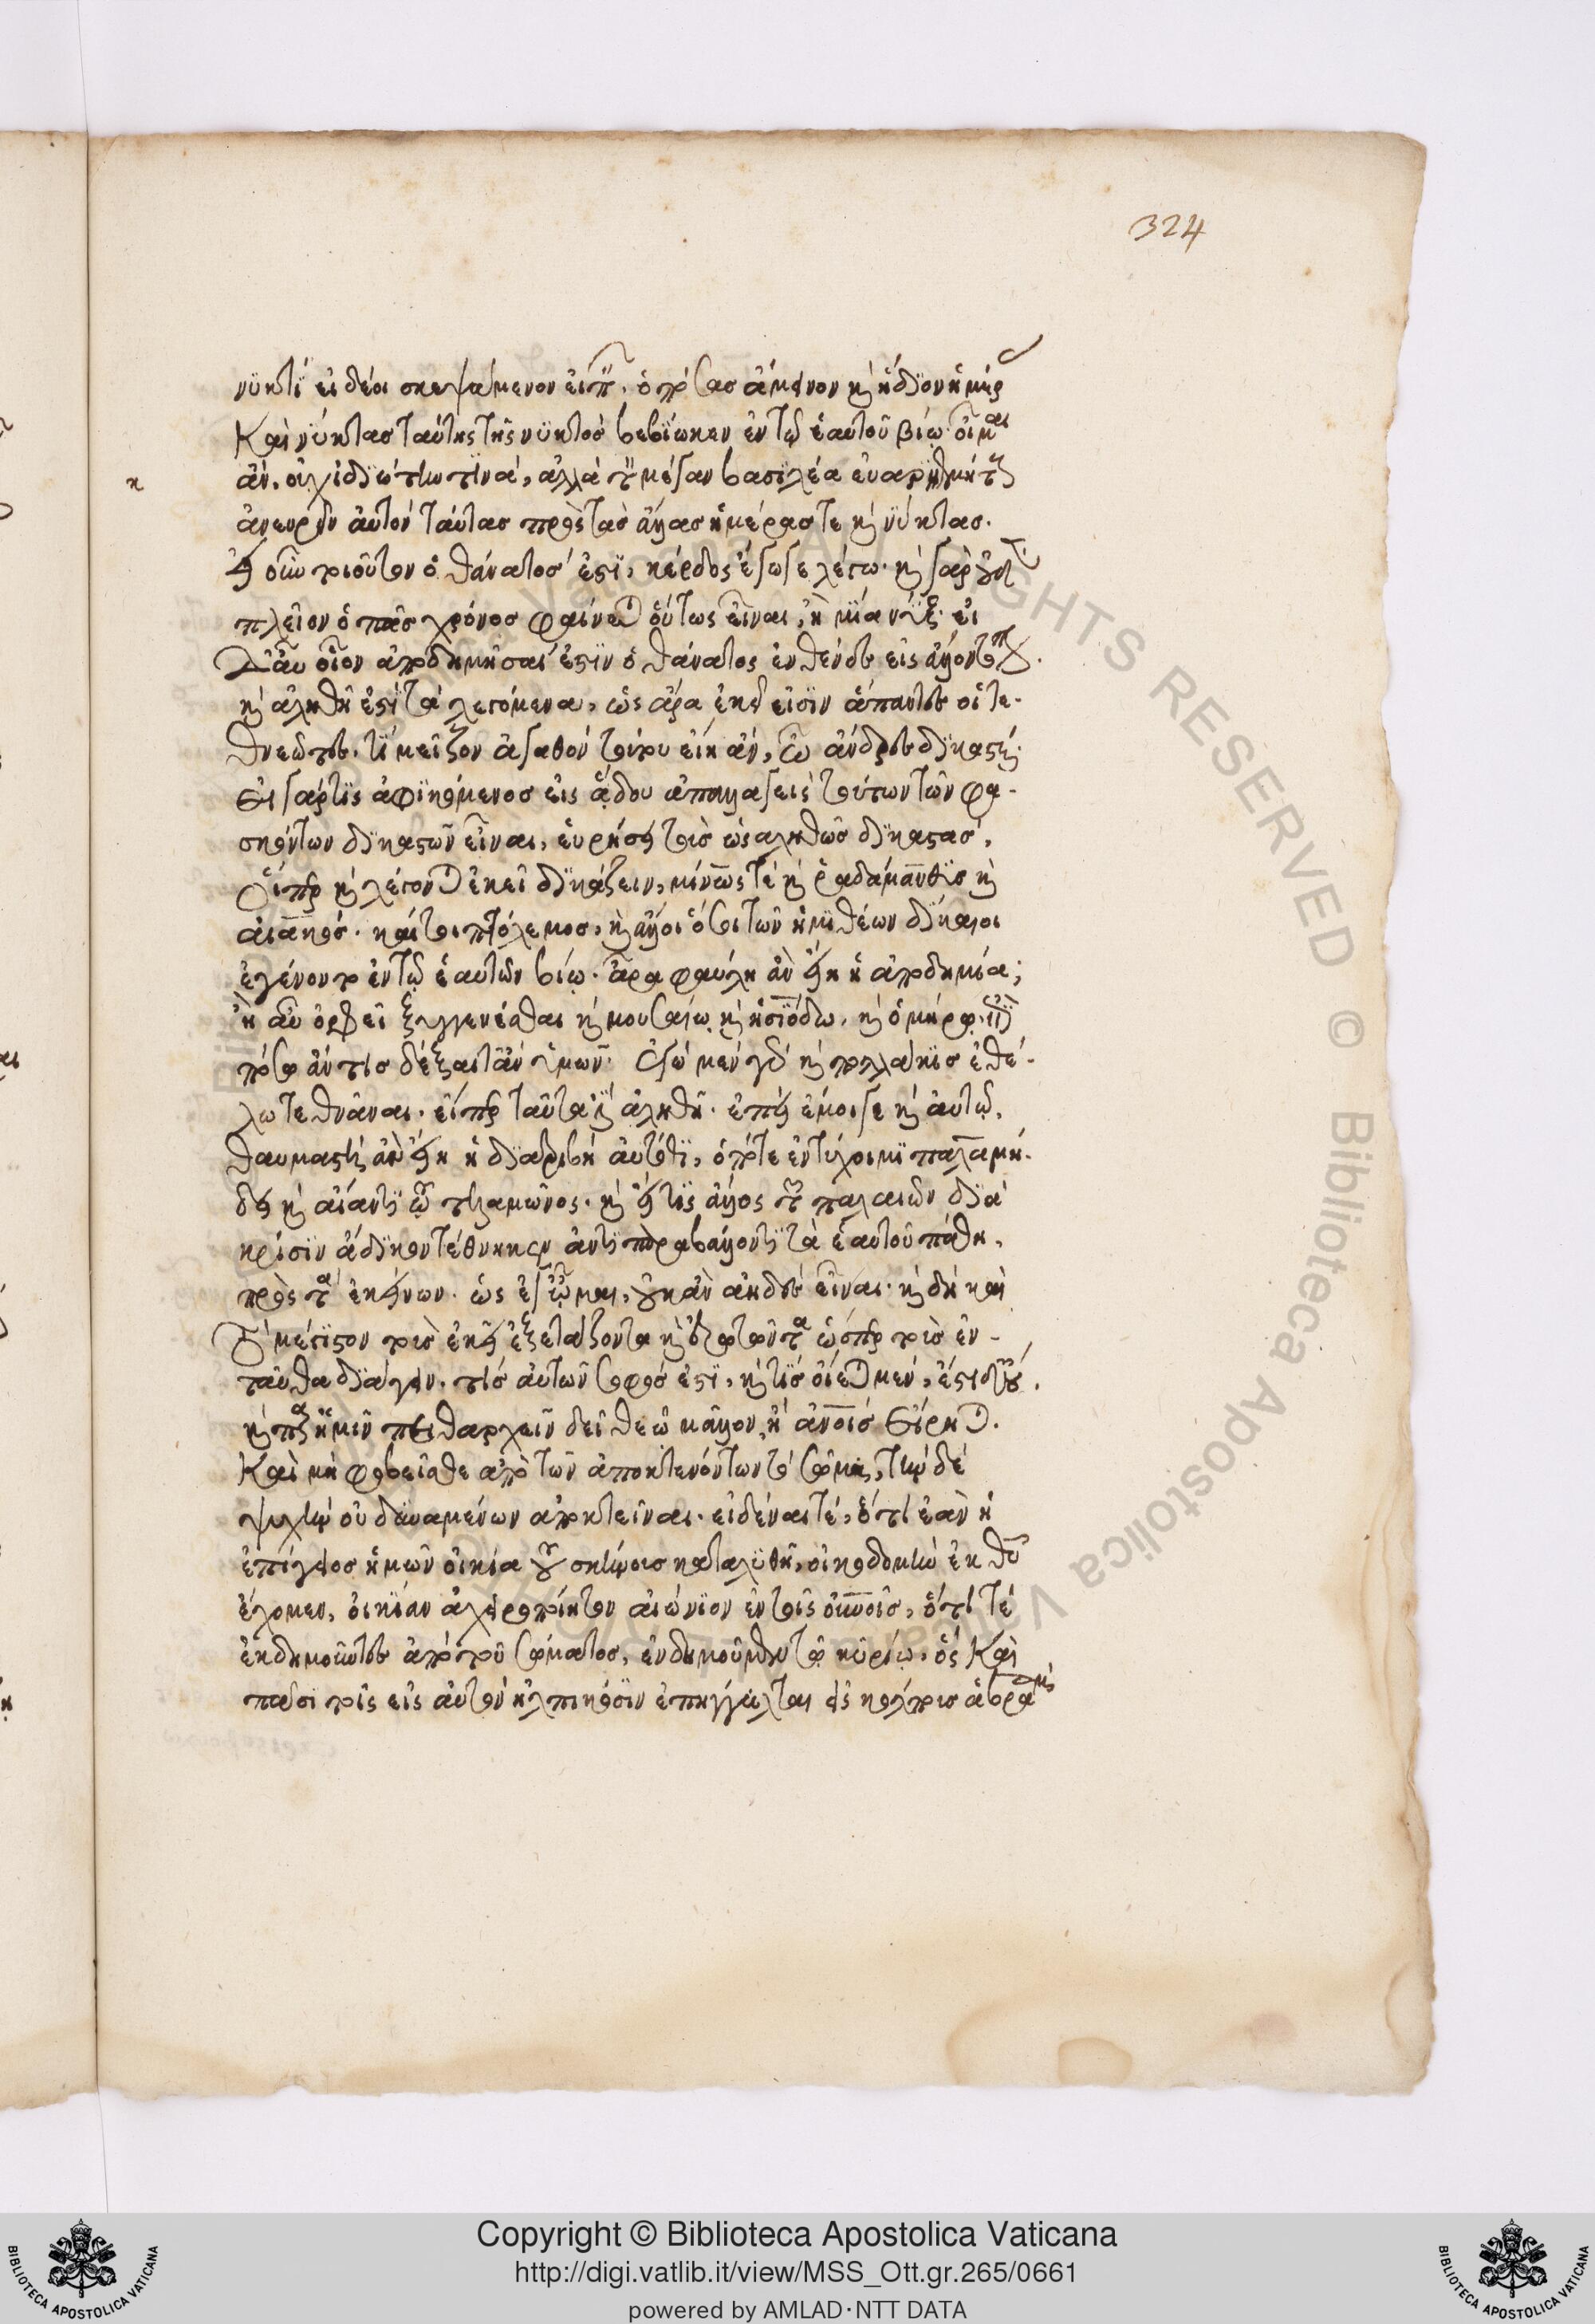 324
νϋκτϊ εἰ δέοι σκεψάμενον εἰπεῖν, ὁπόσας ἄμεινον καὶ ἥδϊον ἡμέρας
Καὶ νΰκτας ταύτης τῆς νϋκτὸς βεβΐωκεν ἐν τῷ ἑαυτοῦ βίῳ· οἶμαι
ἂν, οὐχ ἰδϊώτην τϊνὰ, ἀλλὰ τὸν μέγαν βασϊλέα εὐαρϊθμήτους
ἀνευρεῖν αὐτὸν ταύτας πρὸς τὰς ἄλλας ἡμέρας τε καὶ νΰκτας.
εἰ οὖν τοιοῦτον ὁ θάνατός ἐστϊ, κέρδος ἔγωγε λέγω. καὶ γὰρ οὐδὲν
πλεῖον ὁ πᾶς χρόνος φαίνεται οὕτως εἶναι, ἢ μΐα νΰξ. εἰ
δ' αὖ οἷον ἀποδημῆσαί ἐστϊν ὁ θάνατος ἐνθένδε εἰς ἄλλον τόπον.
καὶ ἀληθῆ ἐστϊ τὰ λεγόμενα, ὡς ἄρα ἐκεῖ εἰσϊν ἅπαντες οἱ τε-
θνεῶτες. τΐ μεῖζον ἀγαθὸν τούτου εἴη ἂν, ὦ ἄνδρες δϊκασταί·
Εἰ γάρ τϊς ἀφϊκόμενος εἰς ᾅδου ἀπαλλαγεὶς τούτων τῶν φα-
σκόντων δϊκαστῶν εἶναι, εὑρήσει τοὺς ὡς ἀληθῶς δϊκαστὰς,
οἵπερ καὶ λέγονται ἐκεῖ δϊκάζειν, μίνως τὲ καὶ ῥαδάμανθϊς καὶ
αἰακός. καὶ τριπτόλεμος, καὶ ἄλλοι ὅσοι τῶν ἡμϊθέων δΐκαιοι
ἐγένοντο ἐν τῷ ἑαυτῶν βίῳ. ἆρα φαύλη ἂν εἴη ἡ ἀποδημία;
ἢ αὖ ὀρφεῖ ξυγγενέσθαι καὶ μουσαίῳ καὶ ἡσϊόδῳ, καὶ ὁμήρῳ, ἐπὶ
πόσῳ ἄν τις δέξαιτ' ἂν ὑμῶν. Ἐγὼ μὲν γὰρ καὶ πολλάκϊς ἐθέ-
λω τεθνάναι. εἴπερ ταῦτά ἐστιν ἀληθῆ. ἐπεὶ ἔμοιγε καὶ αὐτῷ,
θαυμαστὴ ἂν εἴη ἡ δϊατριβὴ αὐτόθϊ, ὁπότε ἐντύχοιμϊ παλαμή-
δει καὶ αἴαντϊ τῷ τελαμῶνος. καὶ εἴ τϊς ἄλλος τῶν παλαιῶν δϊὰ
κρίσϊν ἄδϊκον τέθνηκεν ἀντϊπαραβάλλοντϊ τὰ ἑαυτοῦ πάθη,
πρὸς τὰ ἐκείνων. ὡς ἐγῷμαι, οὐκ ἂν ἀηδὲς εἶναι. καὶ δὴ καὶ
τὸ μέγϊστον τοὺς ἐκεῖ ἐξετάζοντα καὶ ἐρωτῶντα ὥσπερ τοὺς ἐν-
ταῦθα δϊάγειν. τίς αὐτῶν σοφός ἐστϊ, καὶ τϊς οἴεται μὲν, ἔστι δ' οὔ.
καὶ παρ' ἡμῖν πειθαρχεῖν δεῖ θεῷ μᾶλλον, ἢ ἀνοις Εἴρηται.
Καὶ μὴ φοβεῖσθε ἀπὸ τῶν ἀποκτενόντων τὸ σῶμα, τὴν δὲ
ψυχὴν οὐ δϋναμένων ἀποκτεῖναι. εἰδέναι τὲ, ὅτι ἐὰν ἡ
ἐπίγειος ἡμῶν οἰκία τοῦ σκήνους καταλϋθῇ, οἰκοδομὴν ἐκ θῦ
ἔχομεν, οἰκΐαν ἀχειροποίητον αἰώνϊον ἐν τοῖς οὐνοῖς, ὅτί τὲ
ἐκδημοῦντες ἀπὸ τοῦ σώματος, ἐνδημοῦμεν τῷ κϋρίῳ. ὃς Καὶ
πᾶσϊ τοῖς εἰς αὐτὸν ἠλπικόσϊν ἐπηγγέλται εἰς κόλπους ἀβραὰμ